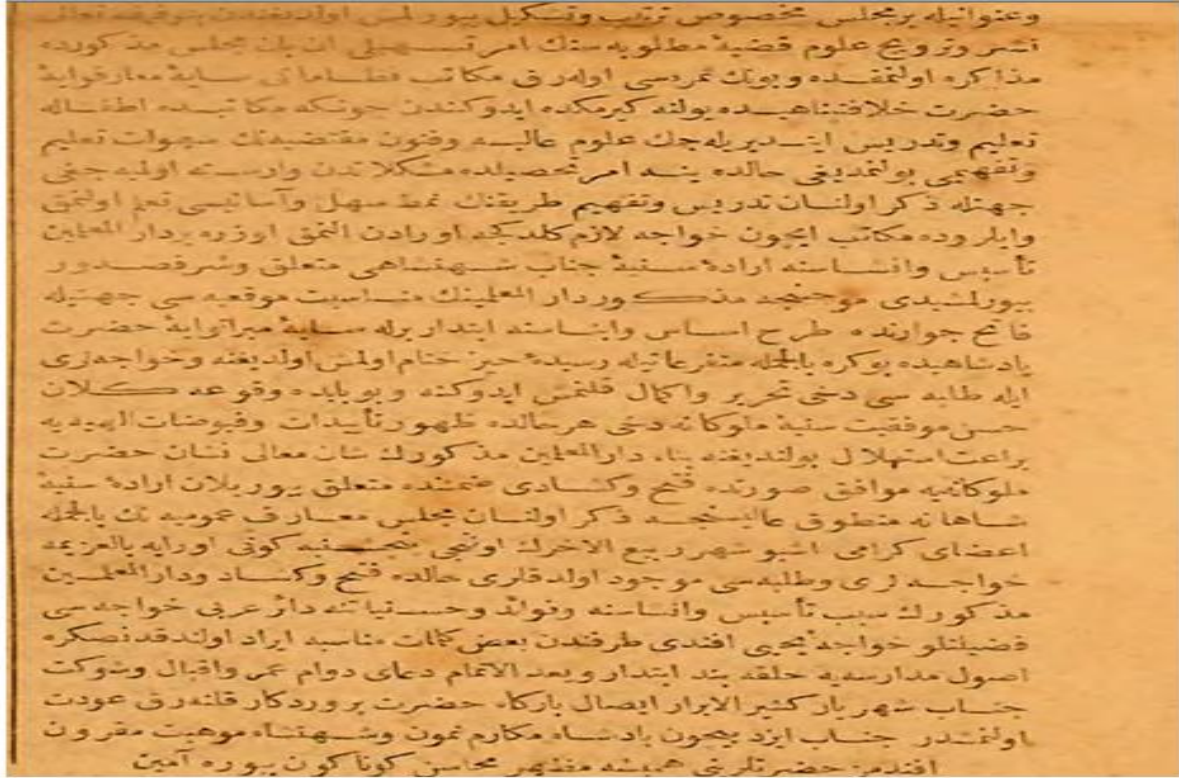 وعنوانيله بر مجلس مخصوص ترتيب وتشكيل بيورلمش اولديغندن بتوفيقه تعالى
نشر وترويج علوم قضيهٔ مطلوبه سنك امر تسهيلى ان بان مجلس مذكورده
مذاكره اولنمقده وبونك ثمره سى اوله رق مكاتب نظاماتى سايهٔ معارفوايهٔ
حضرت خلافتپناهيده يولنه كيرمكده ايدوكندن چونكه مكاتبده اطفاله
تعليم وتدريس ايتديريله جك علوم عاليه وفنون مقتضيه نك سهولت تعليم
وتفهيمى بولنمديغى حالده ينه امر تحصيلده مشكلاتدن وارسته اوليه جغى
جهتله ذكر اولنان تدريس وتفهيم طريقنك نمط سهل وآسانيسى تعلم اولنمق
وايلروده مكاتب ايچون خواجه لازم كلدكجه اورادن النمق اوزره بر دار المعلمين
تأسيس وانشاسنه ارادهٔ سنيهٔ جناب شهنشاهى متعلق وشرفصدور
بيورلمشيدى موجبنجه مذكور دار المعلمينك مناسبت موقعيه سى جهتيله
فاتح جوارنده طرح اساس وابناسنه ابتدار برله سايهٔ ميراتوايهٔ حضرت
پادشاهيده بوكره بالجمله متفرعاتيله رسيدهٔ حيز ختام اولمش اولديغنه وخواجه لرى
ايله طلبه سى دخى تحرير واكمال قلنمش ايدوكنه وبو بابده وقوعه كلان
حسن موفقيت سنيهٔ ملوكانه دخى هر حالده ظهور تأييدات وفيوضات الهيه يه
براعت استهلال بولنديغنه بناء دار المعلمين مذكورك شان معالى نشان حضرت
ملوكانه يه موافق صورتده فتح وكشادى ضمننده متعلق بيوريلان ارادهٔ سنيهٔ
شاهانه منطوق عاليسنجه ذكر اولنان مجلس معارف عموميه نك بالجمله
اعضاى كرامى اشبو شهر ربيع الاخرك اونجى پنجشنبه كونى اورايه بالعزيمه
خواجه لرى وطلبه سى موجود اولدقلرى حالده فتح وكشاد ودار المعلمين
مذكورك سبب تأسيس وانشاسنه وفوائد وحسنياتنه دائر عربى خواجه سى
فضيلتلو خواجه يحيى افندى طرفندن بعض كلمات مناسبه ايراد اولندقدنصكره
اصول مدارسيه حلقه بند ابتدار وبعد الاتمام دعاى دوام عمر واقبال وشوكت
جناب شهريار كثير الابرار ايصال باركاه حضرت پروردكار قلنه رق عودت
اولنمشدر جناب ايزد بيچون پادشاه مكارم نمون وشهنشاه موهبت مقرون
افندمز حضرتلرينى هميشه مظهر محاسن كوناكون بيوره آمين